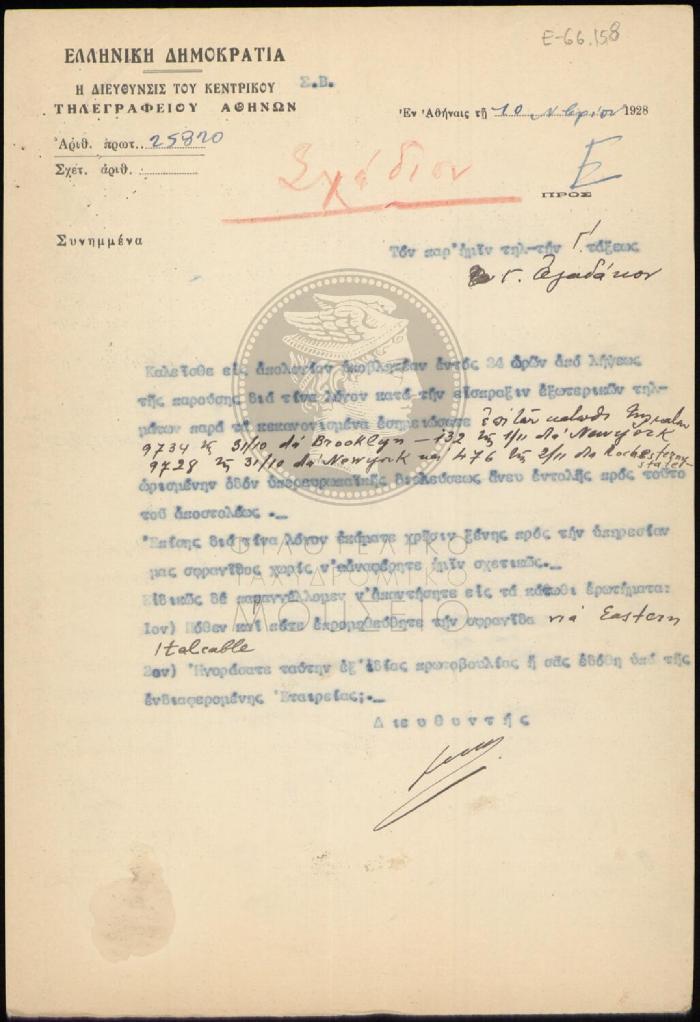 Ε-66.158
ΕΛΛΗΝΙΚΗ ΔΗΜΟΚΡΑΤΙΑ
Η ΔΙΕΥΘΥΝΣΙΣ ΤΟΥ ΚΕΝΤΡΙΚΟΥ
ΤΗΛΕΓΡΑΦΕΙΟΥ ΑΘΗΝΩΝ
Σ.Β.
Ἐν Ἀθήναις τῇ 10 Νβρίου 1928
Ἀριθ. πρωτ. 25820
Σχετ. ἀριθ.
Σχέδιον
Ε
ΠΡΟΣ
Συνημμένα
Τόν παρ'ἡμῖν τηλ-τήν Γ' τάξεως
Γ.
Καλεῖσθε εἰς ἀπολογίαν ὑποβλητέαν ἐντός 24 ὡρῶν ἀπό λήψεως
τῆς παρούσης διά τίνα λόγον κατά τήν εἴσπραξιν ἐξωτερικῶν τηλ-
μάτων παρά τά κεκανονισμένα ἐσημειώσατε ἐπί τῶν κάτωθι τηλ/μάτων
9734 τῆς 31/10 διά Brooklyn – 132 τῆς 1/11 διά Newyork
9728 τῆς 31/10 διά Newyork καί 476 τῆς 2/11 διά Rochesterny
state
ὡρισμένην ὁδόν ὑπερευρωπαϊκῆς διελεύσεως ἄνευ ἐντολῆς πρός τοῦτο
τοῦ ἀποστολέως.-
Ἐπίσης διά τίνα λόγον ἐκάματε χρῆσιν ξένης πρός τήν ὑπηρεσίαν
μας σφραγῖδος χωρίς ν'ἀναφέρητε ἡμῖν σχετικῶς.-
Εἰδικῶς δέ παραγγέλλομεν ν'ἀπαντήσητε εἰς τά κάτωθι ἐρωτήματα:
1ον) Πόθεν καί πότε ἐπρομηθεύθητε τήν σφραγῖδα via Eastern
Italcable
2ον) Ἠγοράσατε ταύτην ἐξ ἰδίας πρωτοβουλίας ἤ σᾶς ἐδόθη ὑπό τῆς
ἐνδιαφερομένης Ἑταιρείας;-
Διευθυντής
ΦΙΛΟΤΕΛΙΚΟ
ΤΑΧΥΔΡΟΜΙΚΟ
ΜΟΥΣΕΙΟ